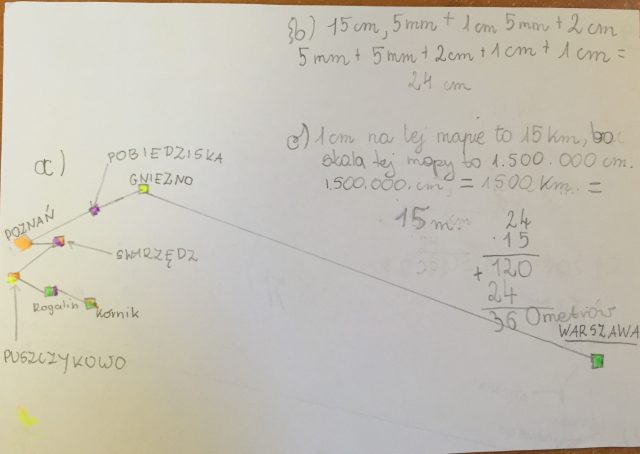 b) 15 cm, 5 mm + 1 cm 5 mm + 2 cm
5 mm + 5 mm + 2 cm + 1 cm + 1 cm =
24 cm
c) 1 cm na tej mapie to 15 km, bo
skala tej mapy to 1.500.000 cm.
1.500.000. cm = 1500 km. =
15 m.
24
· 15
+ 120
24
360 metrów
a)
POBIEDZISKA
GNIEZNO
POZNAŃ
SWIRZĘDZ
Rogalin
Kórnik
PUSZCZYKOWO
WARSZAWA